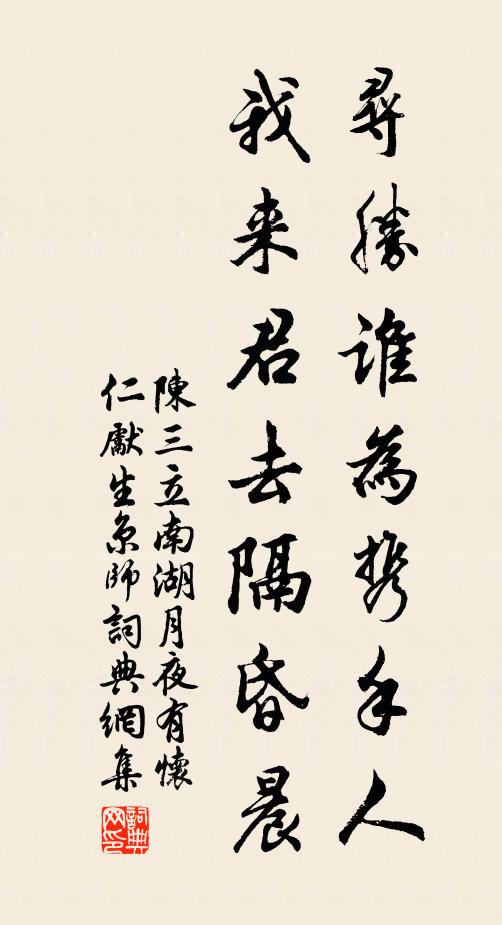 尋勝誰為携手人
我来君去隔昏晨
陳三立南湖月夜有懷
仁獻生京師詞典網集
詞典網印